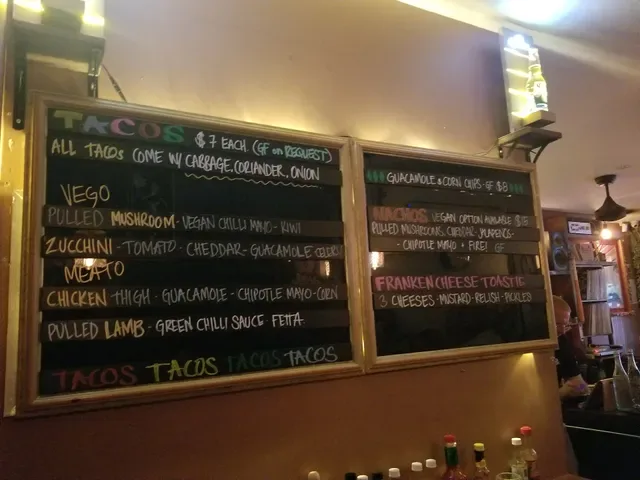 TACOS $7 EACH. (GF on REQUEST)
ALL TACOS COME W/ CABBAGE. CORIANDER. ONION
VEGO
PULLED MUSHROOM - VEGAN CHILLI MAYO - KIWI
ZUCCHINI - TOMATO - CHEDDAR - GUACAMOLE
MEATO
CHICKEN THIGH - GUACAMOLE - CHIPOTLE MAYO - CORN
PULLED LAMB - GREEN CHILLI SAUCE FETTA
TACOS TACOS TACOS TACOS
GUACAMOLE & CORN CHIPS - GF $8
NACHOS VEGAN OPTION AVAILABLE
PULLED MUSHROOMS. CHEDDAR. JALAPENOS -
- CHIPOTLE MAYO + FIRE! GF
FRANKENCHEESE TOASTIE
3 CHEESES - MUSTARD - RELISH - PICKLES!